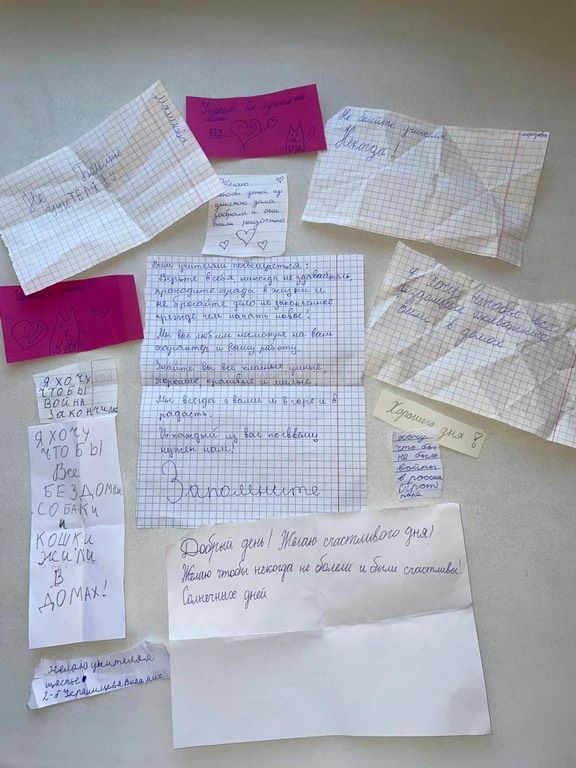 Не болейте
учителя!!
Учителя вы лучшие на
свете
Не болейте учителя
Некогда!
Желаю
чтобы детей из
детского дома
забрали и они
жили радостно
Всем учителям посвещается:
Верьте в себя, никогда не здавайтесь
проходите преграды в жизни и
не бросайте дело не законченное
прежде чем начать новое!
Мы вас любим несмотря на ваш
характер и вашу работу.
Знайте вы все классные, умные,
хорошие красивые и милые.
Мы всегда с вами и в горе и в
радасть.
И каждый из вас по своему
нужен нам!
Запомните
Я хочу чтобы все
бездомные животные
были в домах
Я ХОЧУ
ЧТОБЫ
ВОЙНА
Закончилась
Хорошего дня!
хочу
что бы
не было
войны
в россии
Я ХОЧУ
ЧТОБЫ
Все
БЕЗДОМНЫЕ
СОБАКИ
и
КОШКИ
ЖИЛИ
В
ДОМАХ!
Добрый день! Желаю счастливого дня)
Желаю чтобы некогда не болели и были счастливы!
Солнечных дней
желаю учителям
щастье!
2-б